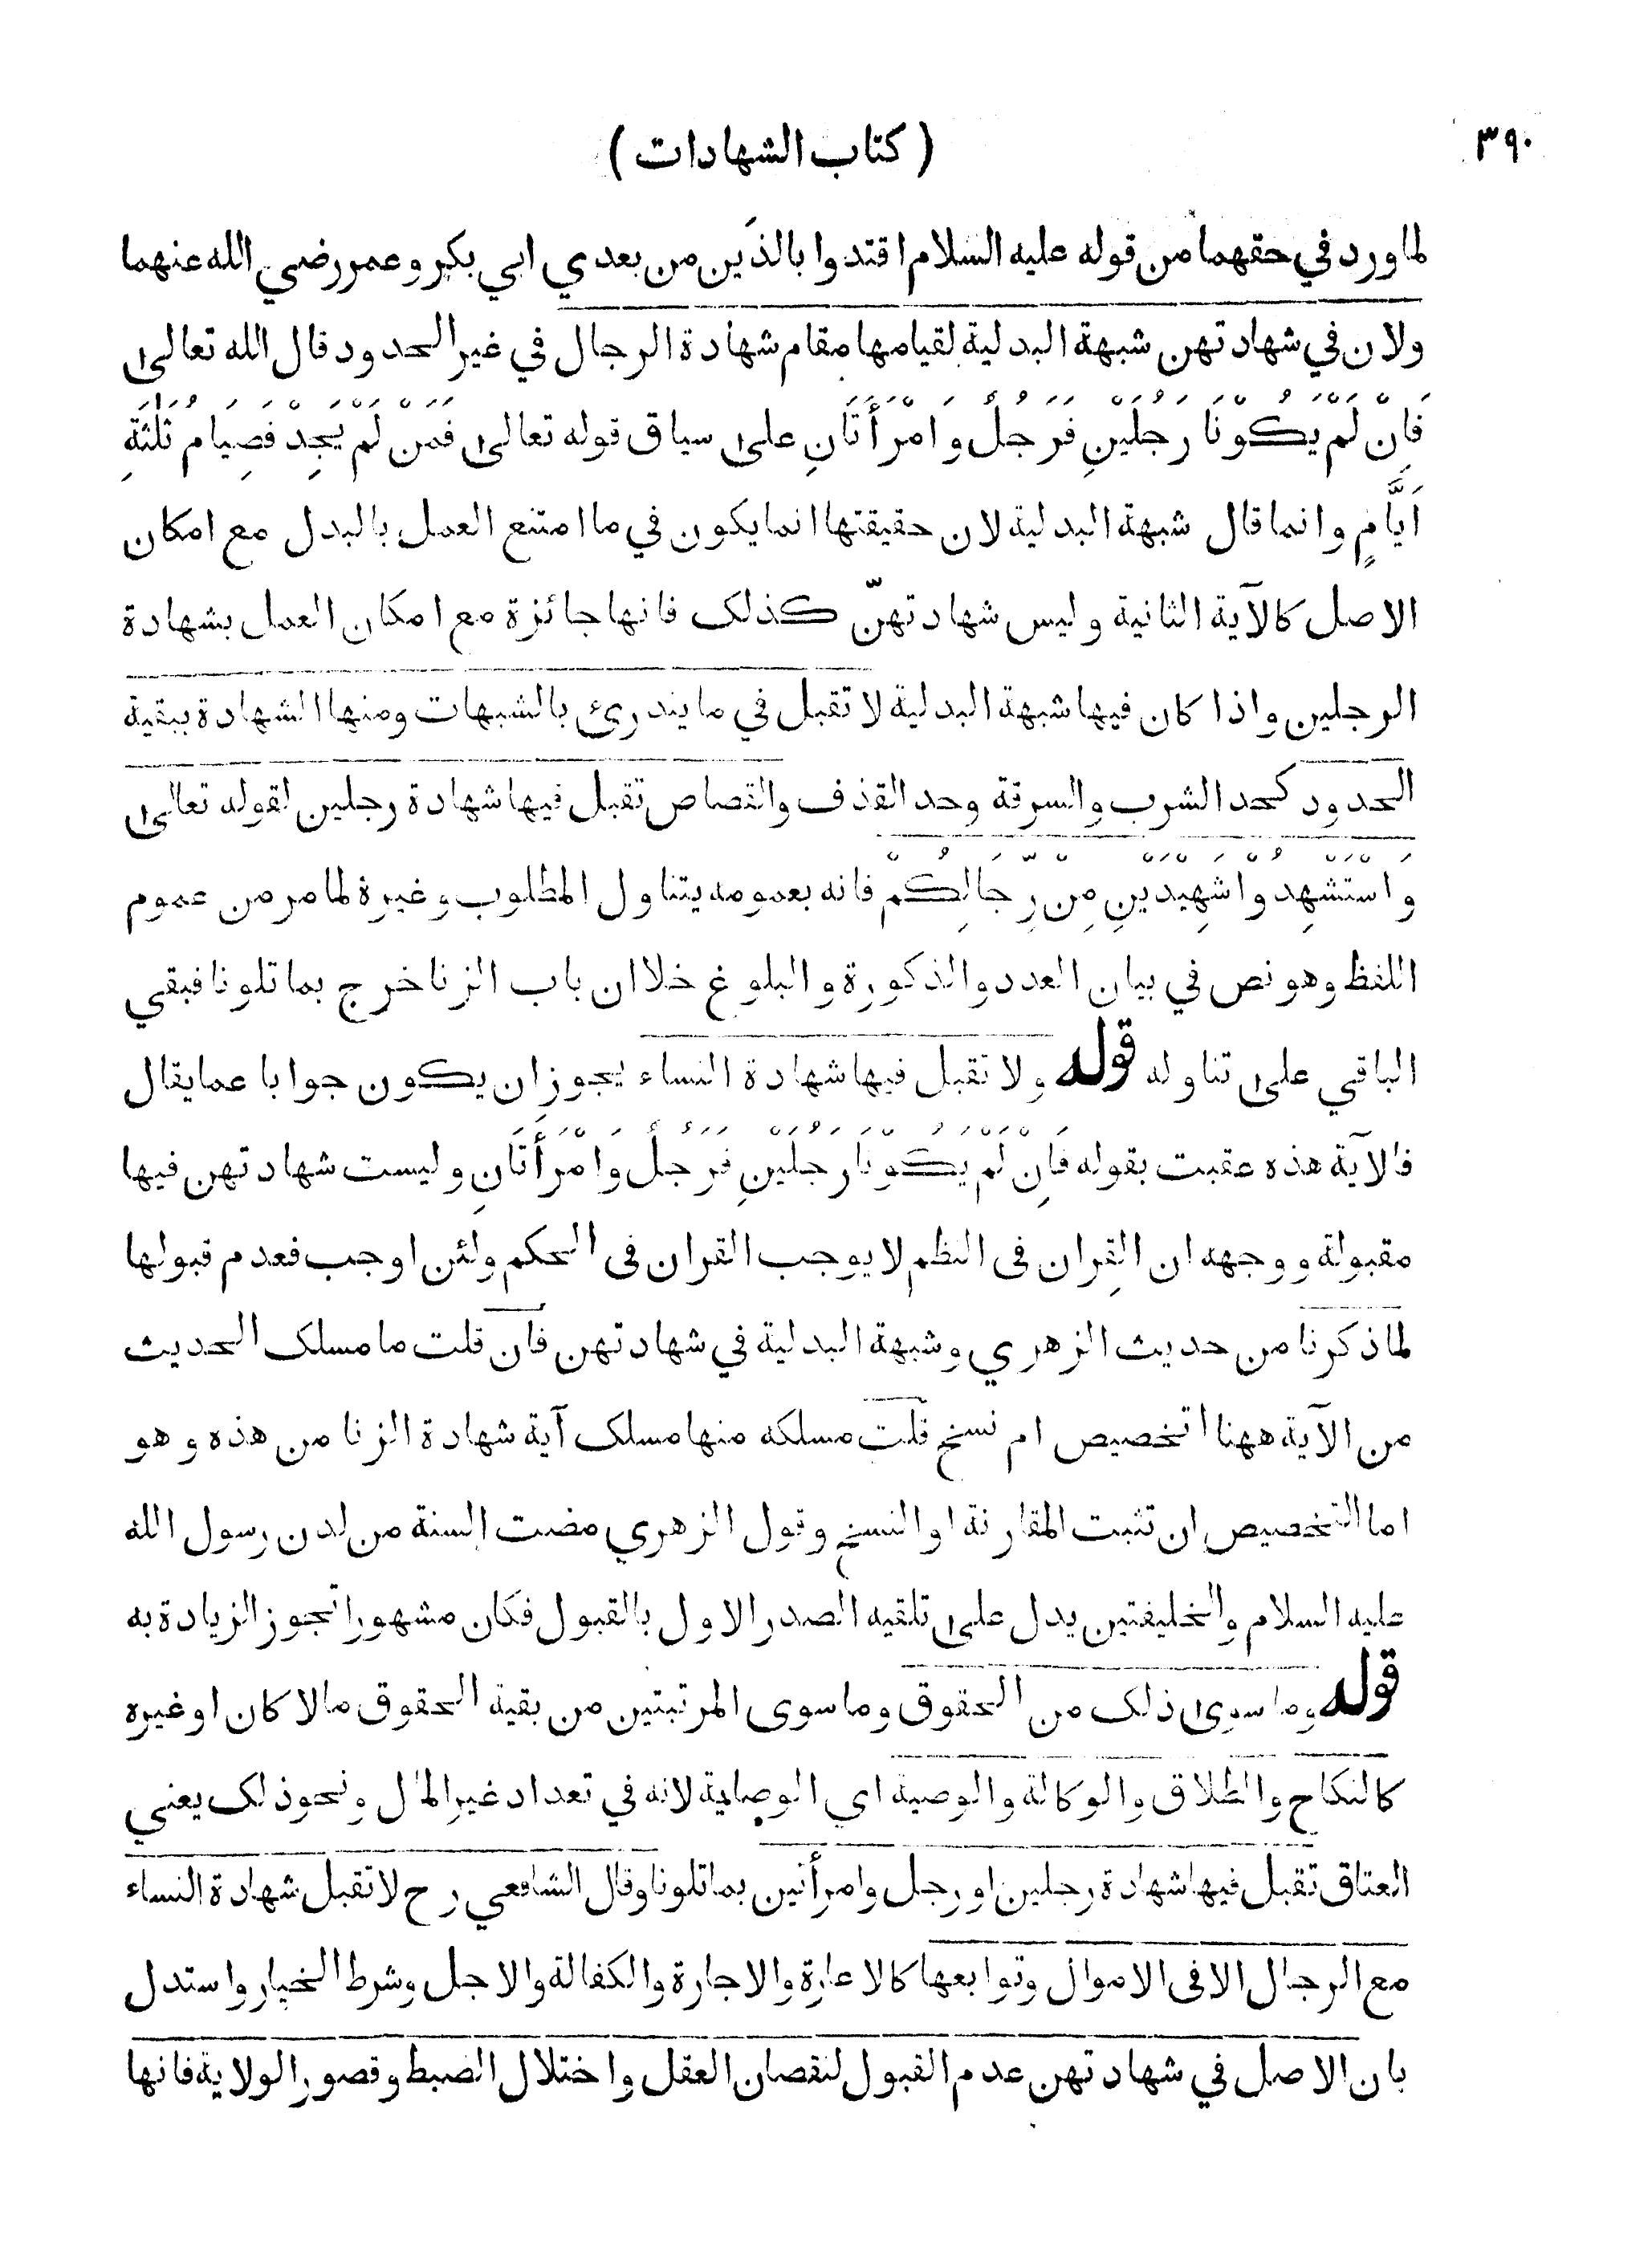 ٣٩٠
( كتاب الشهادات )
لما ورد في حقهما من قوله عليه السلام اقتدوا بالذَين من بعدي ابي بكر وعمر رضي الله عنهما
ولان في شهادتهن شبهة البدلية لقيامها مقام شهادة الرجال في غير الحدود قال الله تعالى
فَاِنْ لَمْ يَكُوْنَا رَجُلَيْنِ فَرَجُلٌ وَامْرَأَتَانِ على سياق قوله تعالى فَمَنْ لَمْ يَجِدْ فَصِيَامُ ثَلٰثَةِ
اَيَّامٍ وانما قال شبهة البدلية لان حقيقتها انما يكون في ما امتنع العمل بالبدل مع امكان
الاصل كالآية الثانية وليس شهادتهنّ كذلك فانها جائزة مع امكان العمل بشهادة
الرجلين واذا كان فيها شبهة البدلية لا تقبل في ما يندرئ بالشبهات ومنها الشهادة ببقية
الحدود كحد الشرب والسرقة وحد القذف والقصاص تقبل فيها شهادة رجلين لقوله تعالى
وَاسْتَشْهِدُوْا شَهِيْدَيْنِ مِنْ رِّجَالِكُمْ فانه بعمومه يتناول المطلوب وغيرة لما مر من عموم
اللفظ وهو نص في بيان العدد والذكورة والبلوغ خلا ان باب الزنا خرج بما تلونا فبقي
الباقي على تناوله قوله ولا تقبل فيها شهادة النساء يجوز ان يكون جوابا عما يقال
فالآية هذه عقبت بقوله فَاِنْ لَمْ يَكُوْنَا رَجُلَيْنِ فَرَجُلٌ وَامْرَأَتَانِ وليست شهادتهن فيها
مقبولة ووجهه ان القِران فى النظم لا يوجب القران فى الحكم ولئن اوجب فعدم قبولها
لما ذكرنا من حديث الزهري وشبهة البدلية في شهادتهن فان قلت ما مسلك الحديث
من الآية ههنا اتخصيص ام نسخ قلت مسلكه منها مسلك آية شهادة الزنا من هذه وهو
اما التخصيص ان تثبت المقارنة او النسخ وقول الزهري مضت السنة من لدن رسول الله
عليه السلام والخليفتين يدل على تلقيه الصدر الاول بالقبول فكان مشهورا تجوز الزيادة به
قوله وما سوى ذلك من الحقوق وما سوى المرتبتين من بقية الحقوق مالا كان او غيره
كالنكاح والطلاق والوكالة والوصية اى الوصاية لانه في تعداد غير المال ونحو ذلك يعني
العتاق تقبل فيها شهادة رجلين او رجل وامرأتين بما تلونا وقال الشافعي رح لا تقبل شهادة النساء
مع الرجال الا فى الاموال وتوابعها كالاعارة والاجارة والكفالة والاجل وشرط الخيار واستدل
بان الاصل في شهادتهن عدم القبول لنقصان العقل واختلال الضبط وقصور الولاية فانها